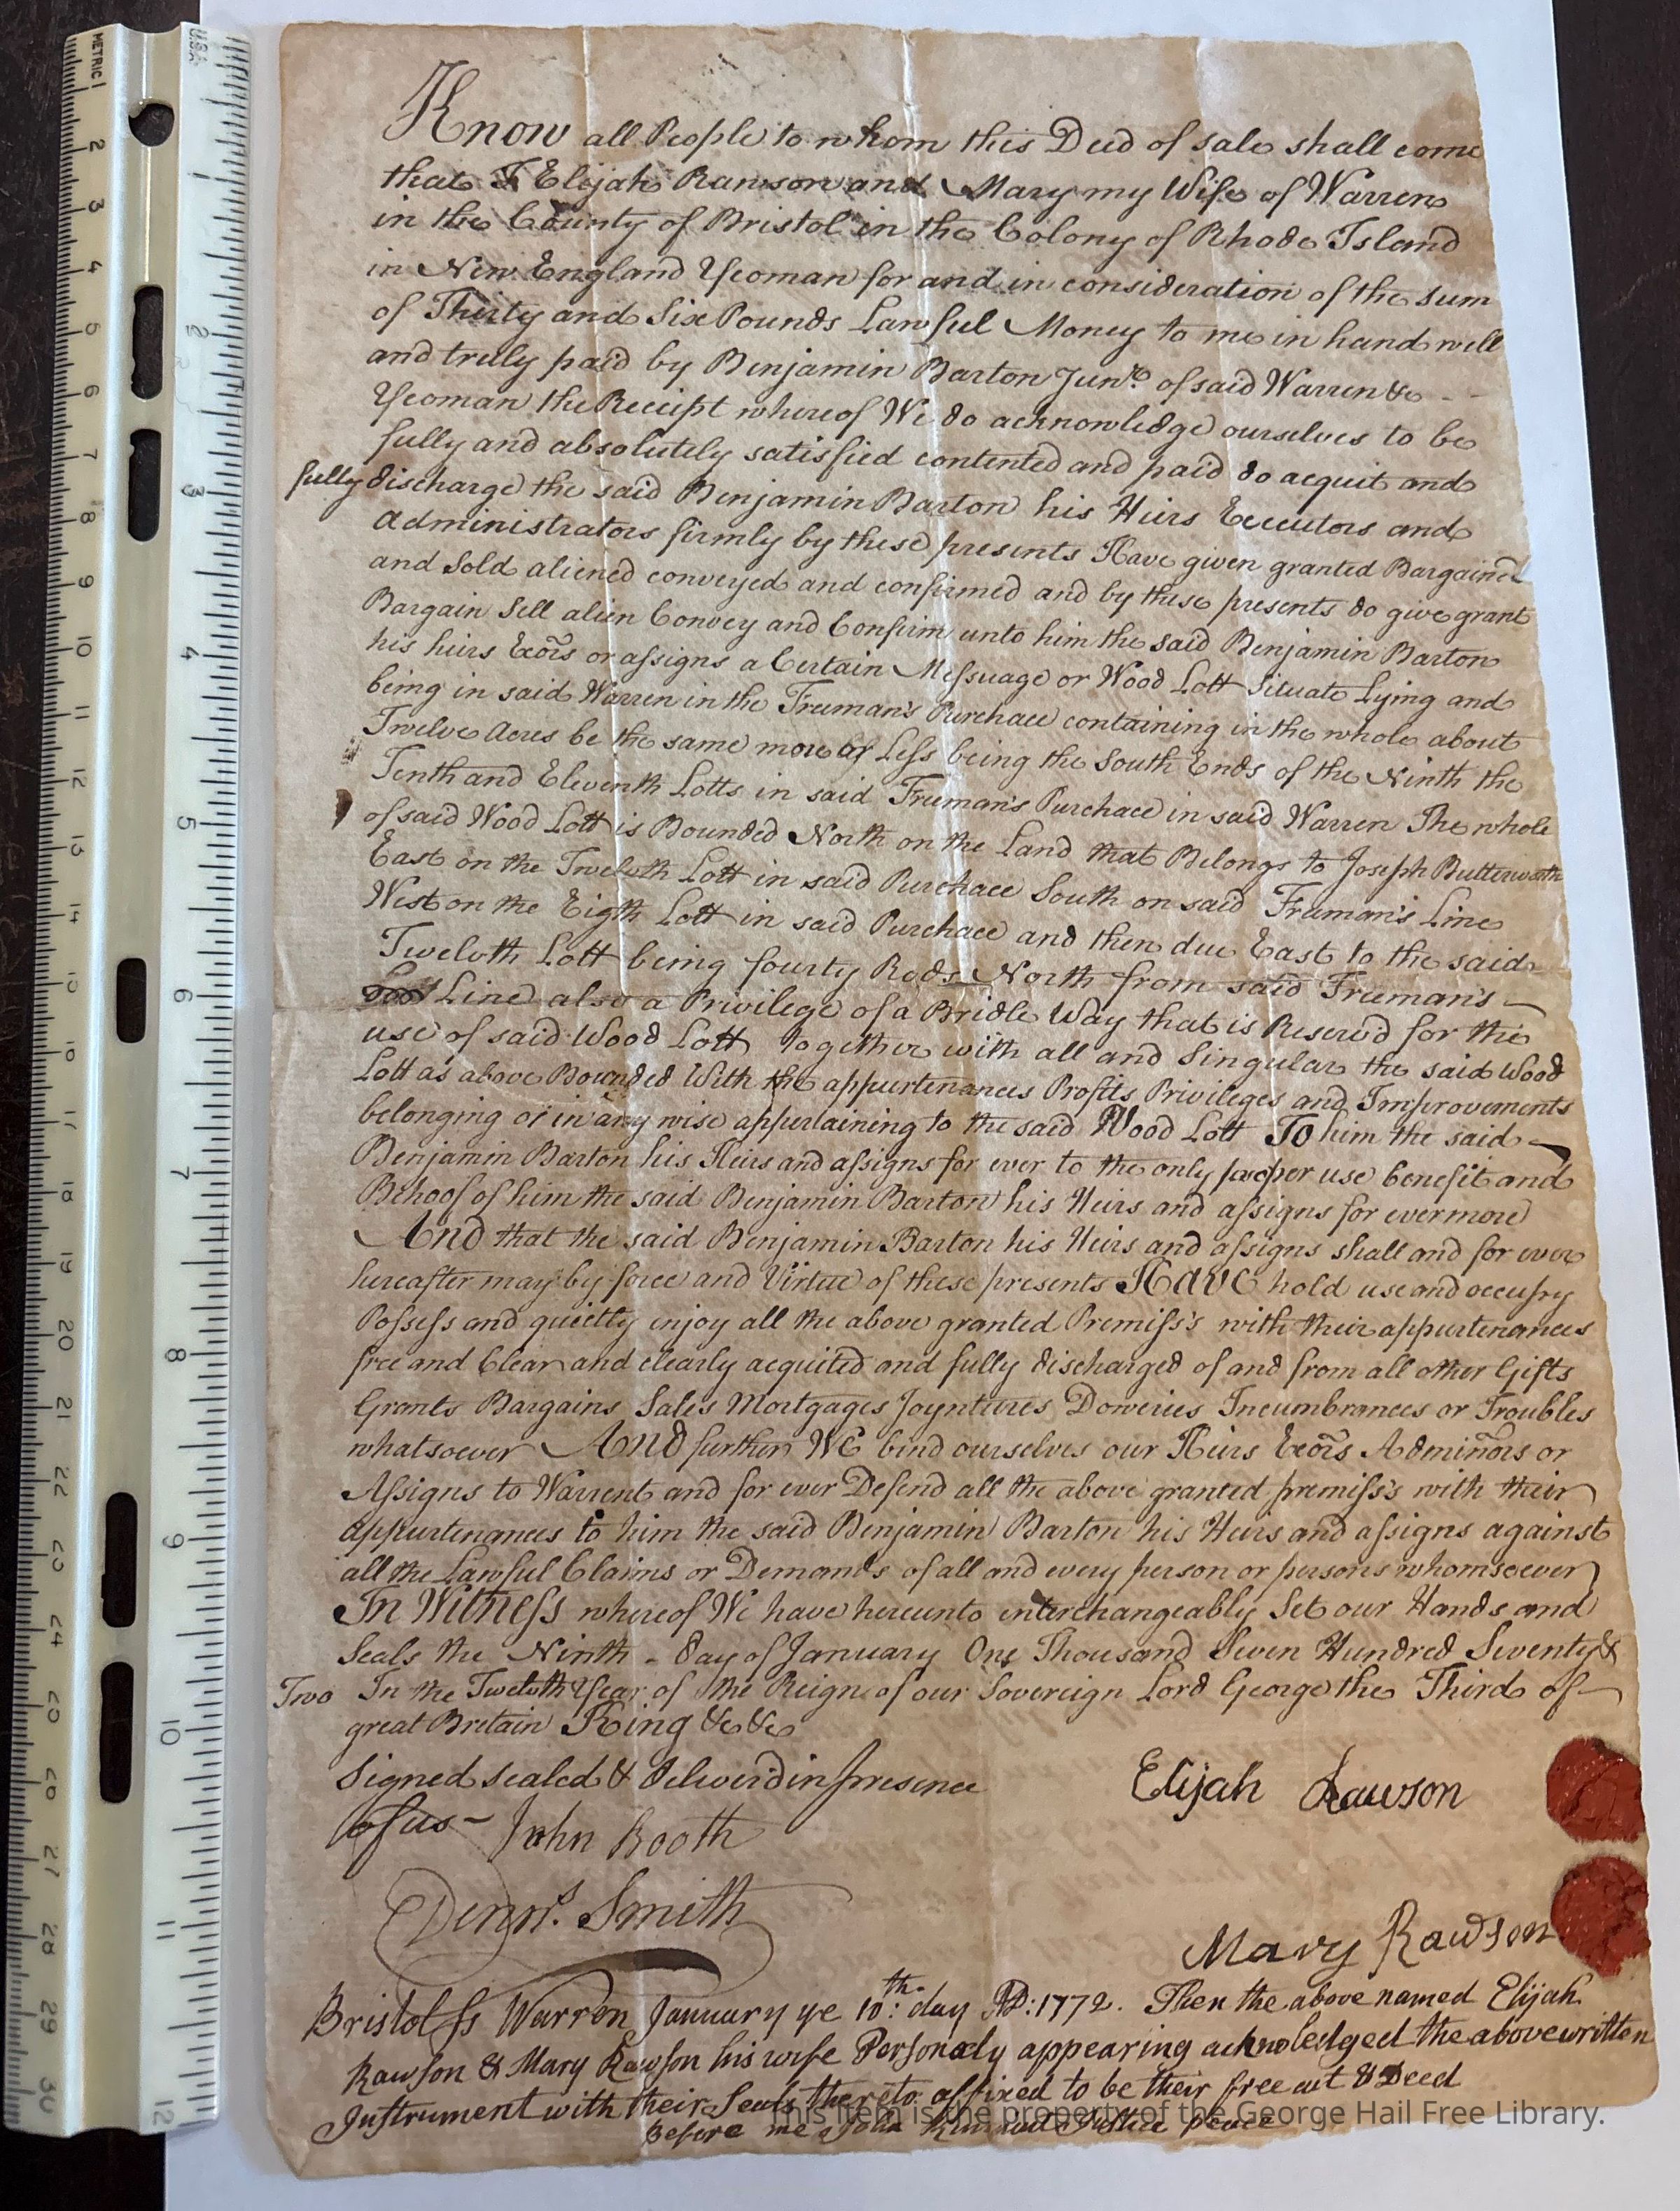 Know all People to whom this Deed of sale shall come
that I Elijah Rawson and Mary my Wife of Warren
in the County of Bristol in the Colony of Rhode Island
in New England Yeoman for and in consideration of the sum
of Thirty and Six Pounds Lawful Money to me in hand well
and truly paid by Benjamin Barton Junr. of said Warren &c
Yeoman the Receipt whereof We do acknowledge ourselves to be
fully and absolutely satisfied contented and paid do acquit and
fully discharge the said Benjamin Barton his Heirs Executors and
Administrators firmly by these presents Have given granted Bargained
and Sold aliened conveyed and confirmed and by these presents do give grant
Bargain Sell alien Convey and Confirm unto him the said Benjamin Barton
his heirs Exõrs or assigns a Certain Messuage or Wood Lott Situate Lying and
being in said Warren in the Freeman's Purchace containing in the whole about
Twelve Acres be the same more or Less being the South Ends of the Ninth the
Tenth and Eleventh Lotts in said Freeman's Purchace in said Warren The whole
of said Wood Lott is Bounded North on the Land that Belongs to Joseph Butterworth
East on the Twelvth Lott in said Purchace South on said Freman's Line
West on the Eigth Lott in said Purchace and then due East to the said
Twelvth Lott being fourty Rods North from said Freeman's
Line also a Privilege of a Bridle Way that is Reserv'd for the
use of said Wood Lott together with all and Singular the said Wood
Lott as above Bounded With the appurtenances Profits Privileges and Improvements
belonging or in any wise appertaining to the said Wood Lott To him the said
Benjamin Barton his Heirs and assigns for ever to the only proper use benefit and
Behoof of him the said Benjamin Barton his Heirs and assigns for evermore
And that the said Benjamin Barton his Heirs and assigns shall and for ever
hereafter may by force and Virtue of these presents Have hold use and occupy
Possess and quietly enjoy all the above granted Premiss's with their appurtenances
free and Clear and clearly acquited and fully discharged of and from all other Gifts
Grants Bargains Sales Mortgages Joyntures Doweries Incumbrances or Troubles
whatsoever And further We bind ourselves our Heirs Exõrs Adminõrs or
Assigns to Warrent and for ever Defend all the above granted premiss's with their
appurtenances to him the said Benjamin Barton his Heirs and assigns against
all the Lawful Claims or Demands of all and every person or persons whomsoever
In Witness whereof We have hereunto interchangeably Set our Hands and
Seals the Ninth day of January One Thousand Seven Hundred Seventy &
Two In the Twelvth Year of the Reign of our Sovereign Lord George the Third of
great Britain King &c &c
Signed sealed & Deliver'd in presence
of us
Elijah Rawson
John Rooth
Smith
Mary Rawson
Bristol ss Warren January ye 10th: day AD: 1772. Then the above named Elijah
Rawson & Mary Rawson his wife Personaly appearing acknoledged the above written
Instrument with their Seals thereto affixed to be their free act & Deed
Before me John Justice peace
This item is the property of the George Hail Free Library.
METRIC 1 2 3 4 5 6 7 8 9 10 11 12 13 14 15 16 17 18 19 20 21 22 23 24 25 26 27 28 29 30
U.S.A. 2 3 4 5 6 7 8 9 10 11 12